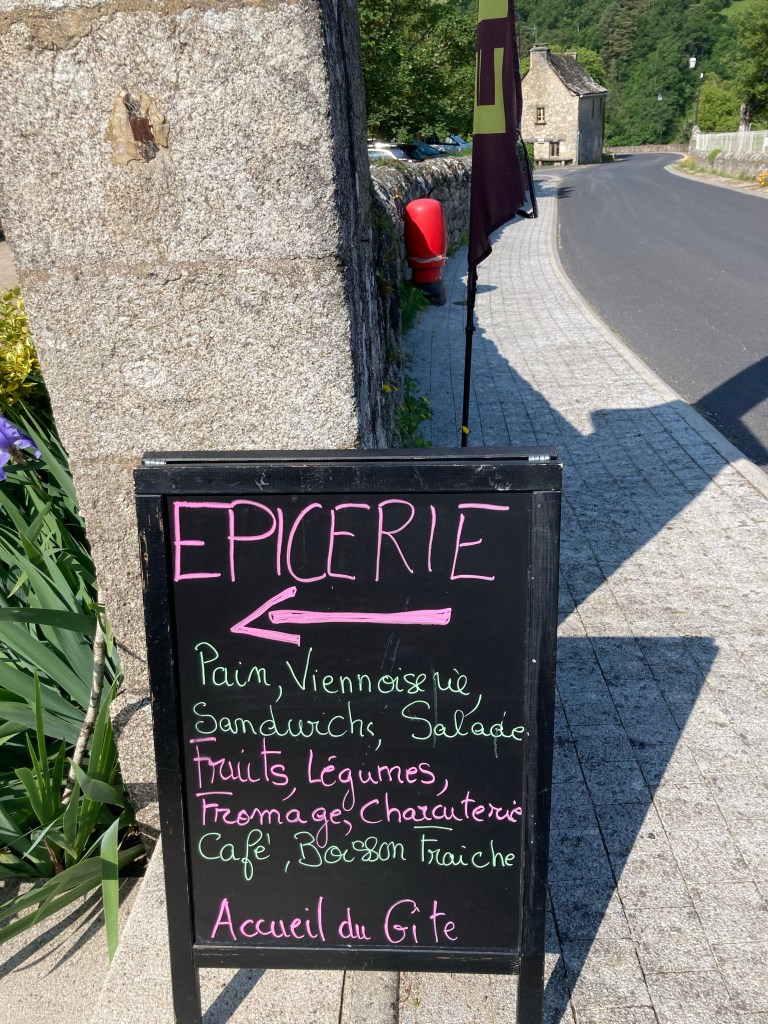 EPICERIE
Pain, Viennoiserie,
Sandwichs, Salade
Fruits, Légumes,
Fromage, Charcuterie
Café, Boisson Fraiche
Accueil du Gîte